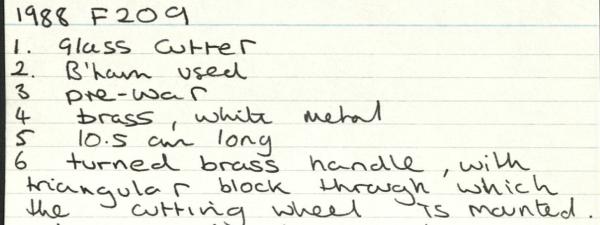 1988 F209
1. Glass cutter
2. B'ham used
3 pre-war
4 brass, white metal
5 10.5 cm long
6 turned brass handle, with
triangular block through which
the cutting wheel is mounted.